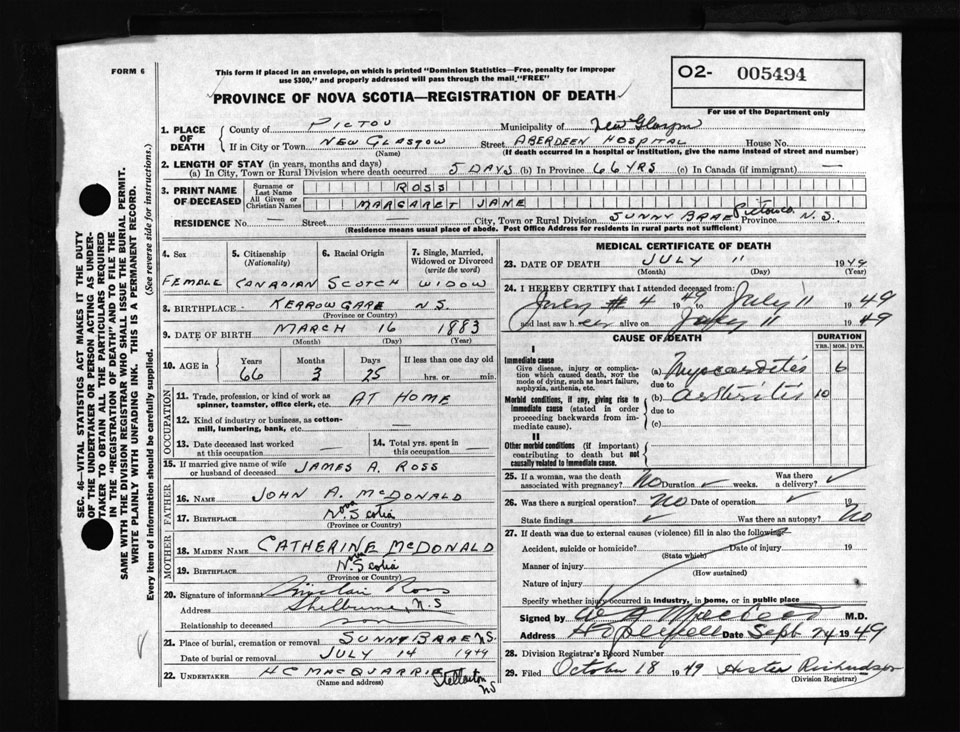 FORM 6
This form if placed in an envelope, on which is printed "Dominion Statistics—Free, penalty for improper
use $300," and properly addressed will pass through the mail "FREE"
O2- 005494
For use of the Department only
PROVINCE OF NOVA SCOTIA—REGISTRATION OF DEATH
1. PLACE OF DEATH County of PICTOU Municipality of New Glasgow
If in City or Town NEW GLASGOW Street ABERDEEN HOSPITAL House No.
(Name) (If death occurred in a hospital or institution, give the name instead of street and number)
2. LENGTH OF STAY (in years, months and days)
(a) In City, Town or Rural Division where death occurred 5 DAYS (b) In Province 66 YRS (c) In Canada (if immigrant) —
3. PRINT NAME OF DECEASED Surname or Last Name ROSS
All Given or Christian Names MARGARET JANE
RESIDENCE No. — Street — City, Town or Rural Division SUNNY BRAE Pictou Co. Province N.S.
(Residence means usual place of abode. Post Office Address for residents in rural parts not sufficient)
4. Sex 5. Citizenship (Nationality) 6. Racial Origin 7. Single, Married, Widowed or Divorced (write the word)
FEMALE CANADIAN SCOTCH WIDOW
8. BIRTHPLACE KERROWGARE N S.
(Province or Country)
9. DATE OF BIRTH MARCH 16 1883
(Month) (Day) (Year)
10. AGE in Years Months Days If less than one day old
66 3 25 hrs. or min.
OCCUPATION
11. Trade, profession, or kind of work as
spinner, teamster, office clerk, etc. AT HOME
12. Kind of industry or business, as cotton-
mill, lumbering, bank, etc. —
13. Date deceased last worked
at this occupation —
14. Total yrs. spent in
this occupation —
15. If married give name of wife
or husband of deceased JAMES A. ROSS
FATHER
16. NAME JOHN A. McDONALD
17. BIRTHPLACE N. Scotia
(Province or Country)
MOTHER
18. MAIDEN NAME CATHERINE McDONALD
19. BIRTHPLACE N. Scotia
(Province or Country)
20. Signature of informant Sinclair Ross
Address Shelburne, N.S
Relationship to deceased son
21. Place of burial, cremation or removal SUNNY BRAE N.S.
Date of burial or removal JULY 14 1949
22. UNDERTAKER H C MACQUARRIE Stellarton NS
(Name and address)
MEDICAL CERTIFICATE OF DEATH
23. DATE OF DEATH JULY 11 1949
(Month) (Day) (Year)
24. I HEREBY CERTIFY that I attended deceased from:
July 4 1949 to July 11 1949
and last saw her alive on July 11 1949
CAUSE OF DEATH DURATION
YRS. MOS. DYS.
I
Immediate cause
Give disease, injury or complica-
tion which caused death, NOT the
mode of dying, such as heart failure,
asphyxia, asthenia, etc.
(a) Myocarditis 6
due to
Morbid conditions, if any, giving rise to
immediate cause (stated in order
proceeding backwards from im-
mediate cause).
(b) arteritis 10
due to
(c)
II
Other morbid conditions (if important)
contributing to death but not
causally related to immediate cause.
25. If a woman, was the death
associated with pregnancy? No Duration weeks. Was there
a delivery?
26. Was there a surgical operation? No Date of operation 19
State findings Was there an autopsy? No
27. If death was due to external causes (violence) fill in also the following
Accident, suicide or homicide? Date of injury 19
(State which)
Manner of injury
(How sustained)
Nature of injury
Specify whether injury occurred in industry, in home, or in public place
Signed by M.D.
Address Hopewell Date Sept 24 1949
28. Division Registrar's Record Number
29. Filed October 18 1949 Hester Richardson
(Division Registrar)
SEC. 46—VITAL STATISTICS ACT MAKES IT THE DUTY
OF THE UNDERTAKER OR PERSON ACTING AS UNDER-
TAKER TO OBTAIN ALL THE PARTICULARS REQUIRED
IN THE "REGISTRATION OF DEATH" AND TO FILE THE
SAME WITH THE DIVISION REGISTRAR WHO SHALL ISSUE THE BURIAL PERMIT.
WRITE PLAINLY WITH UNFADING INK. THIS IS A PERMANENT RECORD.
Every item of information should be carefully supplied. (See reverse side for instructions.)